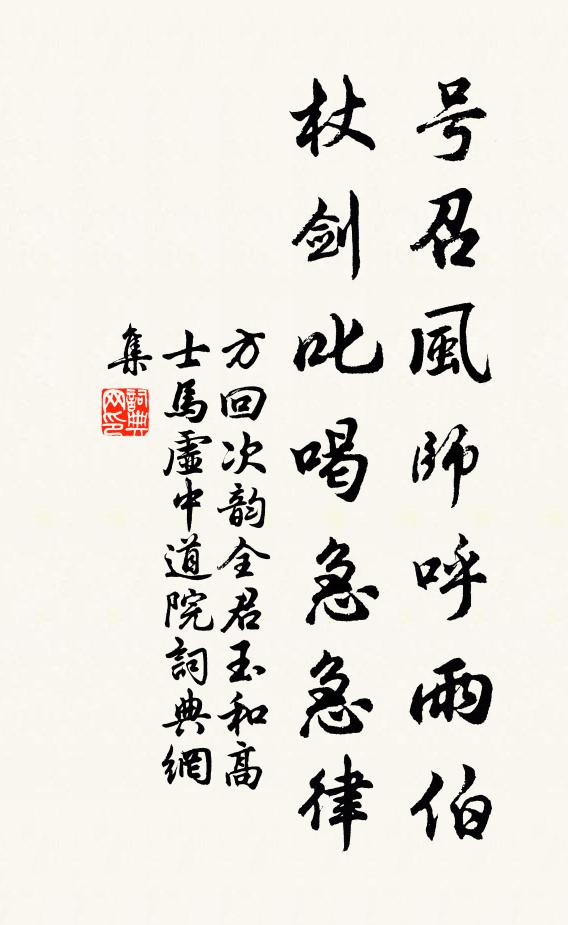 号召風師呼雨伯
杖剑叱喝急急律
方回次韵全君玉和高
士馬虛中道院詞典網
集
詞典網印